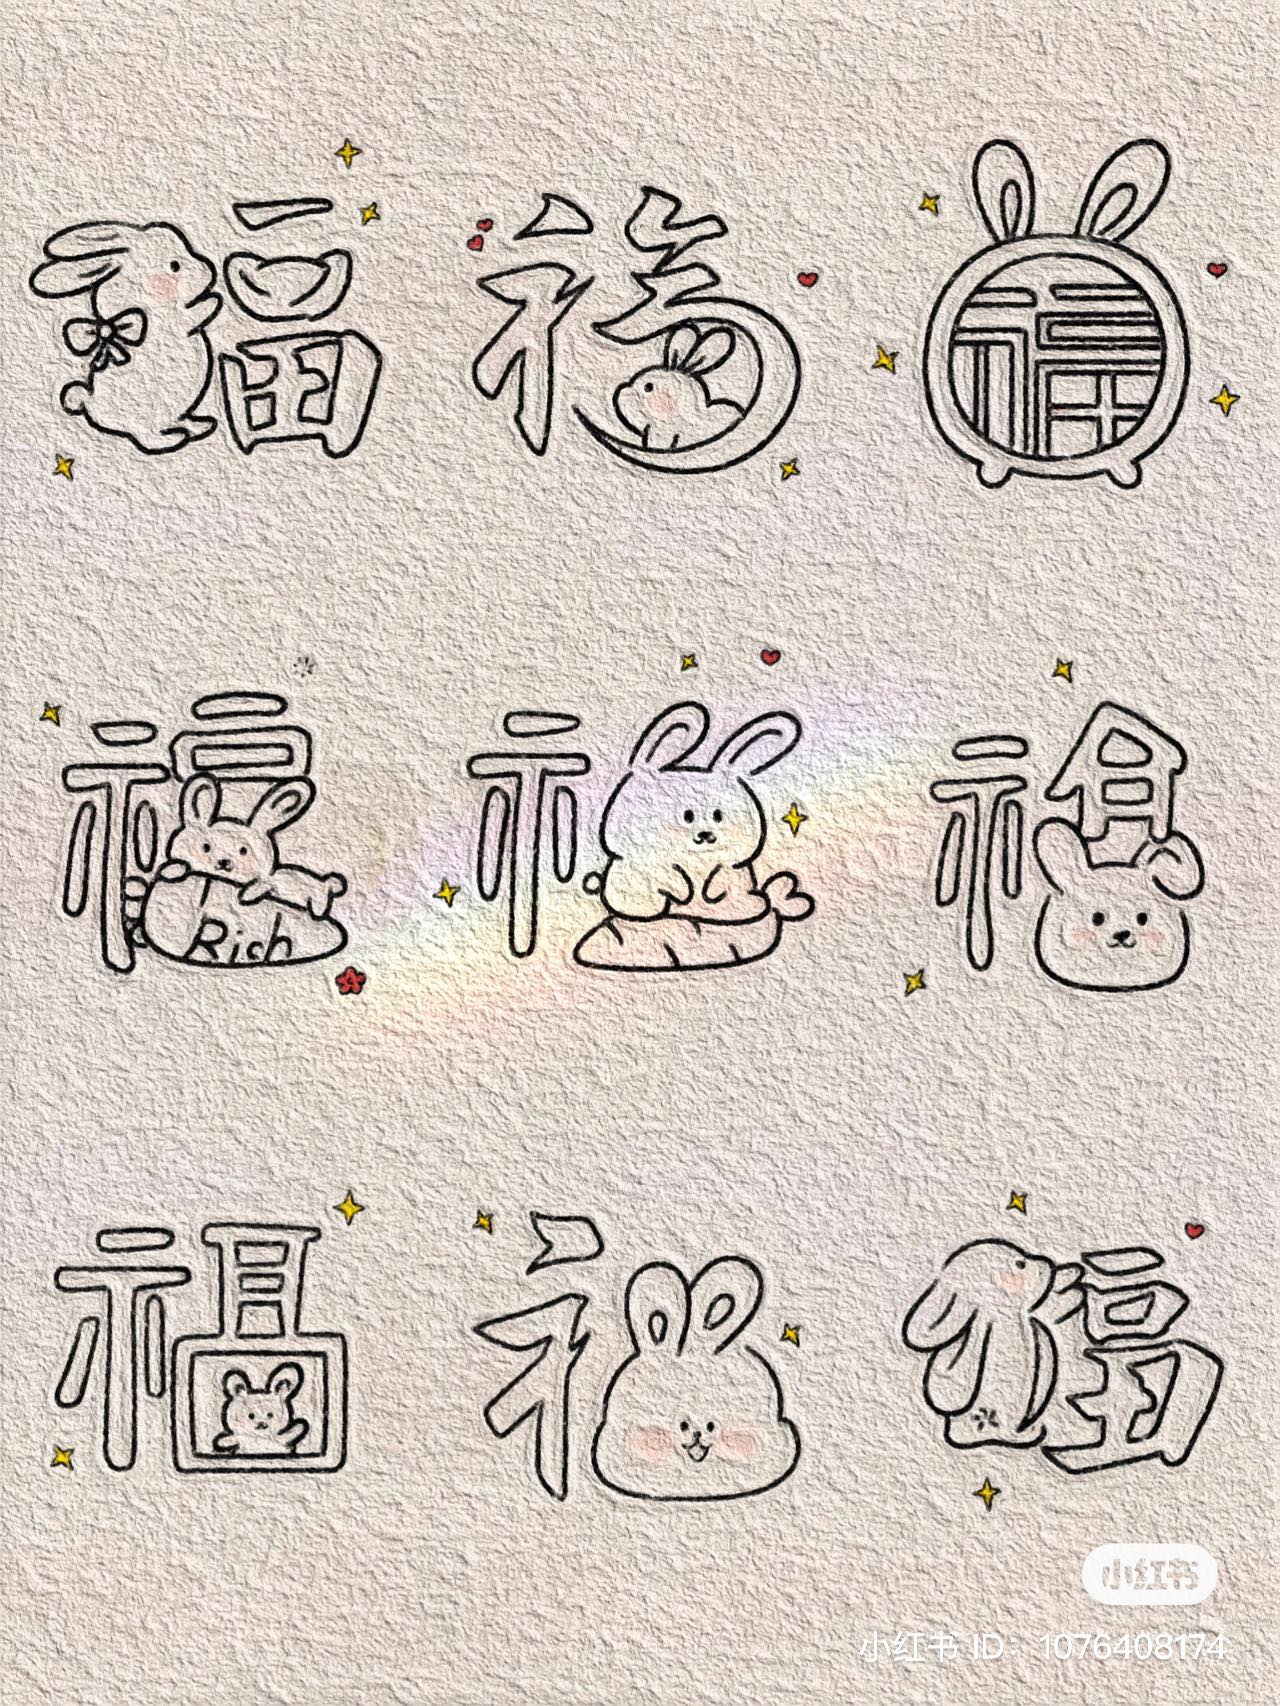 福 福 福
福 福 福
福 福 福
Rich
小红书
小红书 ID: 1076408174